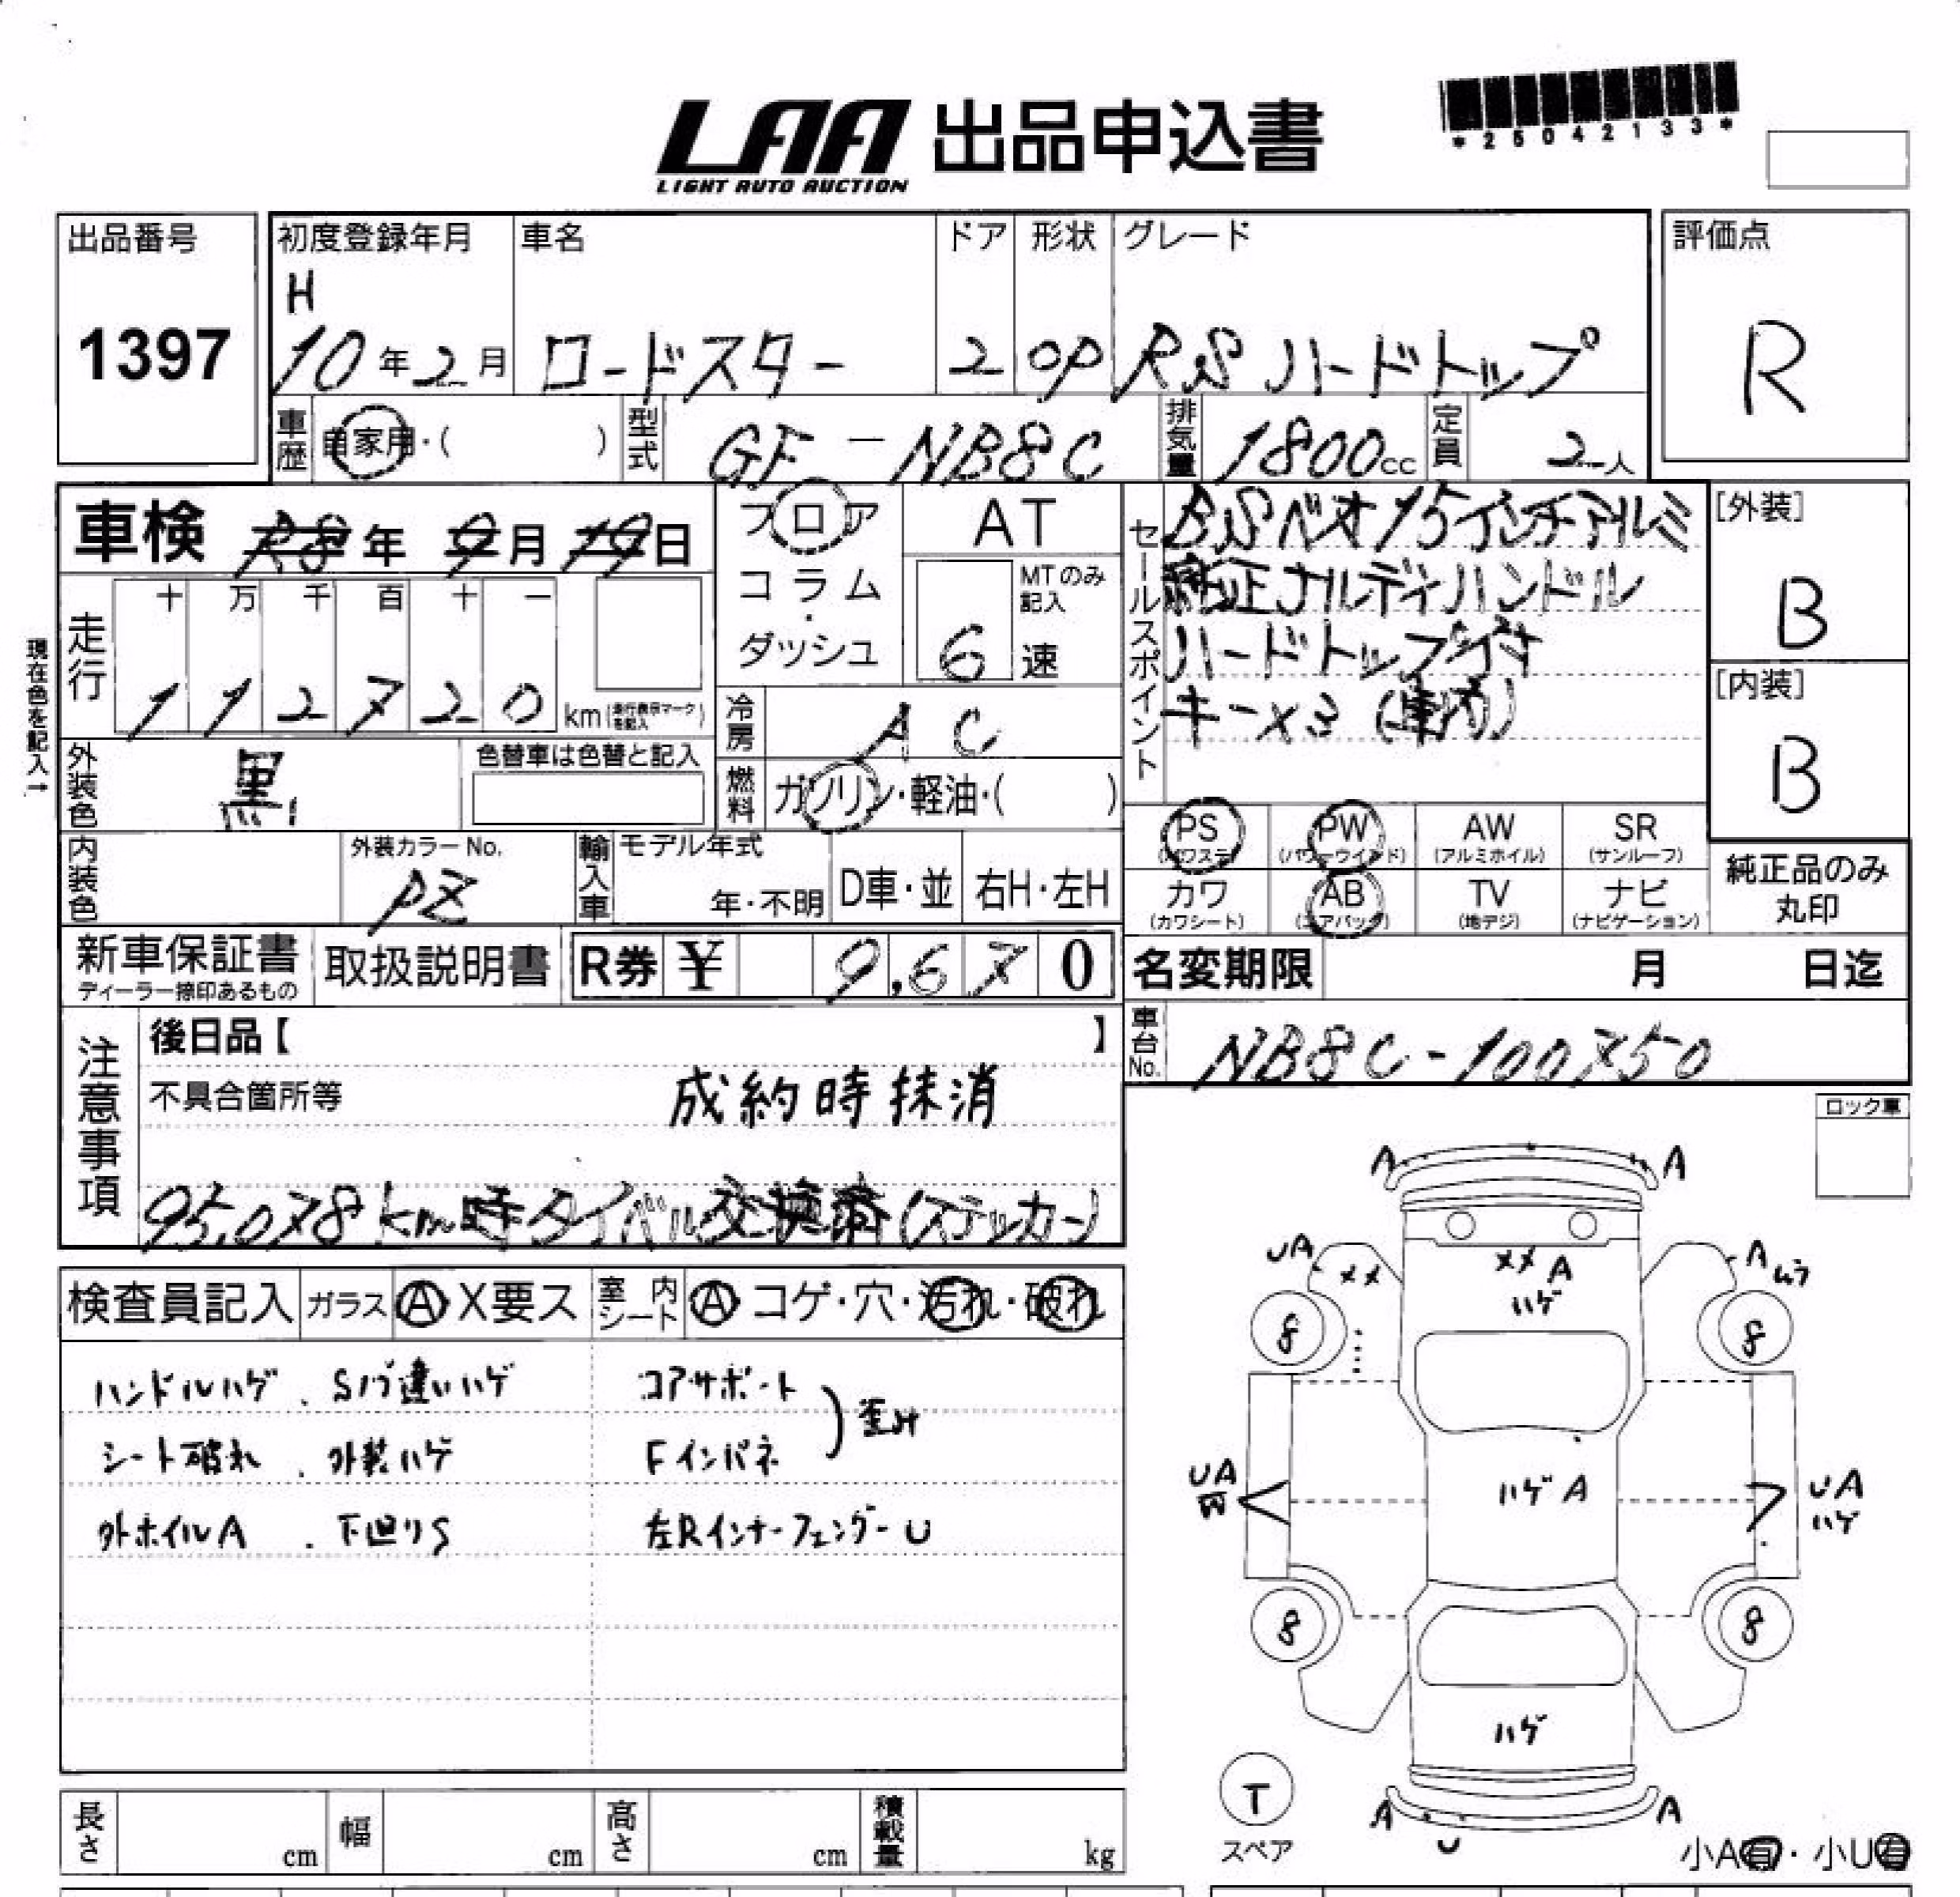 LAA 出品申込書
LIGHT AUTO AUCTION
*25042133*
出品番号
1397
初度登録年月 車名 ドア 形状 グレード
H
10年2月 ロードスター 2 OP RS ハードトップ
評価点
R
車歴 自家用・( ) 型式 GF-NB8C 排気量 1800cc 定員 2人
車検 R8年 9月 19日
フロア
コラム・
ダッシュ
AT
MTのみ記入
6速
セールスポイント
BSベオ15インチアルミ
純正ナルディハンドル
ハードトップ付
キー×3 (車内)
[外装]
B
[内装]
B
現在色を記入→
走行 十 万 千 百 十 一
112720 km(走行表示マークを記入)
冷房 AC
燃料 ガソリン・軽油・( )
外装色 黒
色替車は色替と記入
内装色 外装カラーNo.
PZ
輸入車 モデル年式
年・不明 D車・並 右H・左H
PS PW AW SR
(パワステ) (パワーウインド) (アルミホイル) (サンルーフ)
カワ AB TV ナビ
(カワシート) (エアバッグ) (地デジ) (ナビゲーション)
純正品のみ
丸印
新車保証書
ディーラー捺印あるもの
取扱説明書 R券 ¥ 9,670
名変期限 月 日迄
車台No. NB8C-100750
注意事項
後日品【 】
不具合箇所等 成約時抹消
95,078km時タイベル交換済(ステッカー)
ロック車
検査員記入 ガラス A X要ス 室内シート A コゲ・穴・汚れ・破れ
ハンドルハゲ . Sノブ違いハゲ コアサポート
シート破れ . 外装ハゲ Fインパネ
歪み
外ホイルA . 下廻りS 左Rインナーフェンダー U
A A
UA ×× ××A A ムラ
ハゲ
8 8
UA ハゲA UA
ハゲ
8 8
ハゲ
T
スペア
A U A
小A有・小U有
長さ cm 幅 cm 高さ cm 積載量 kg